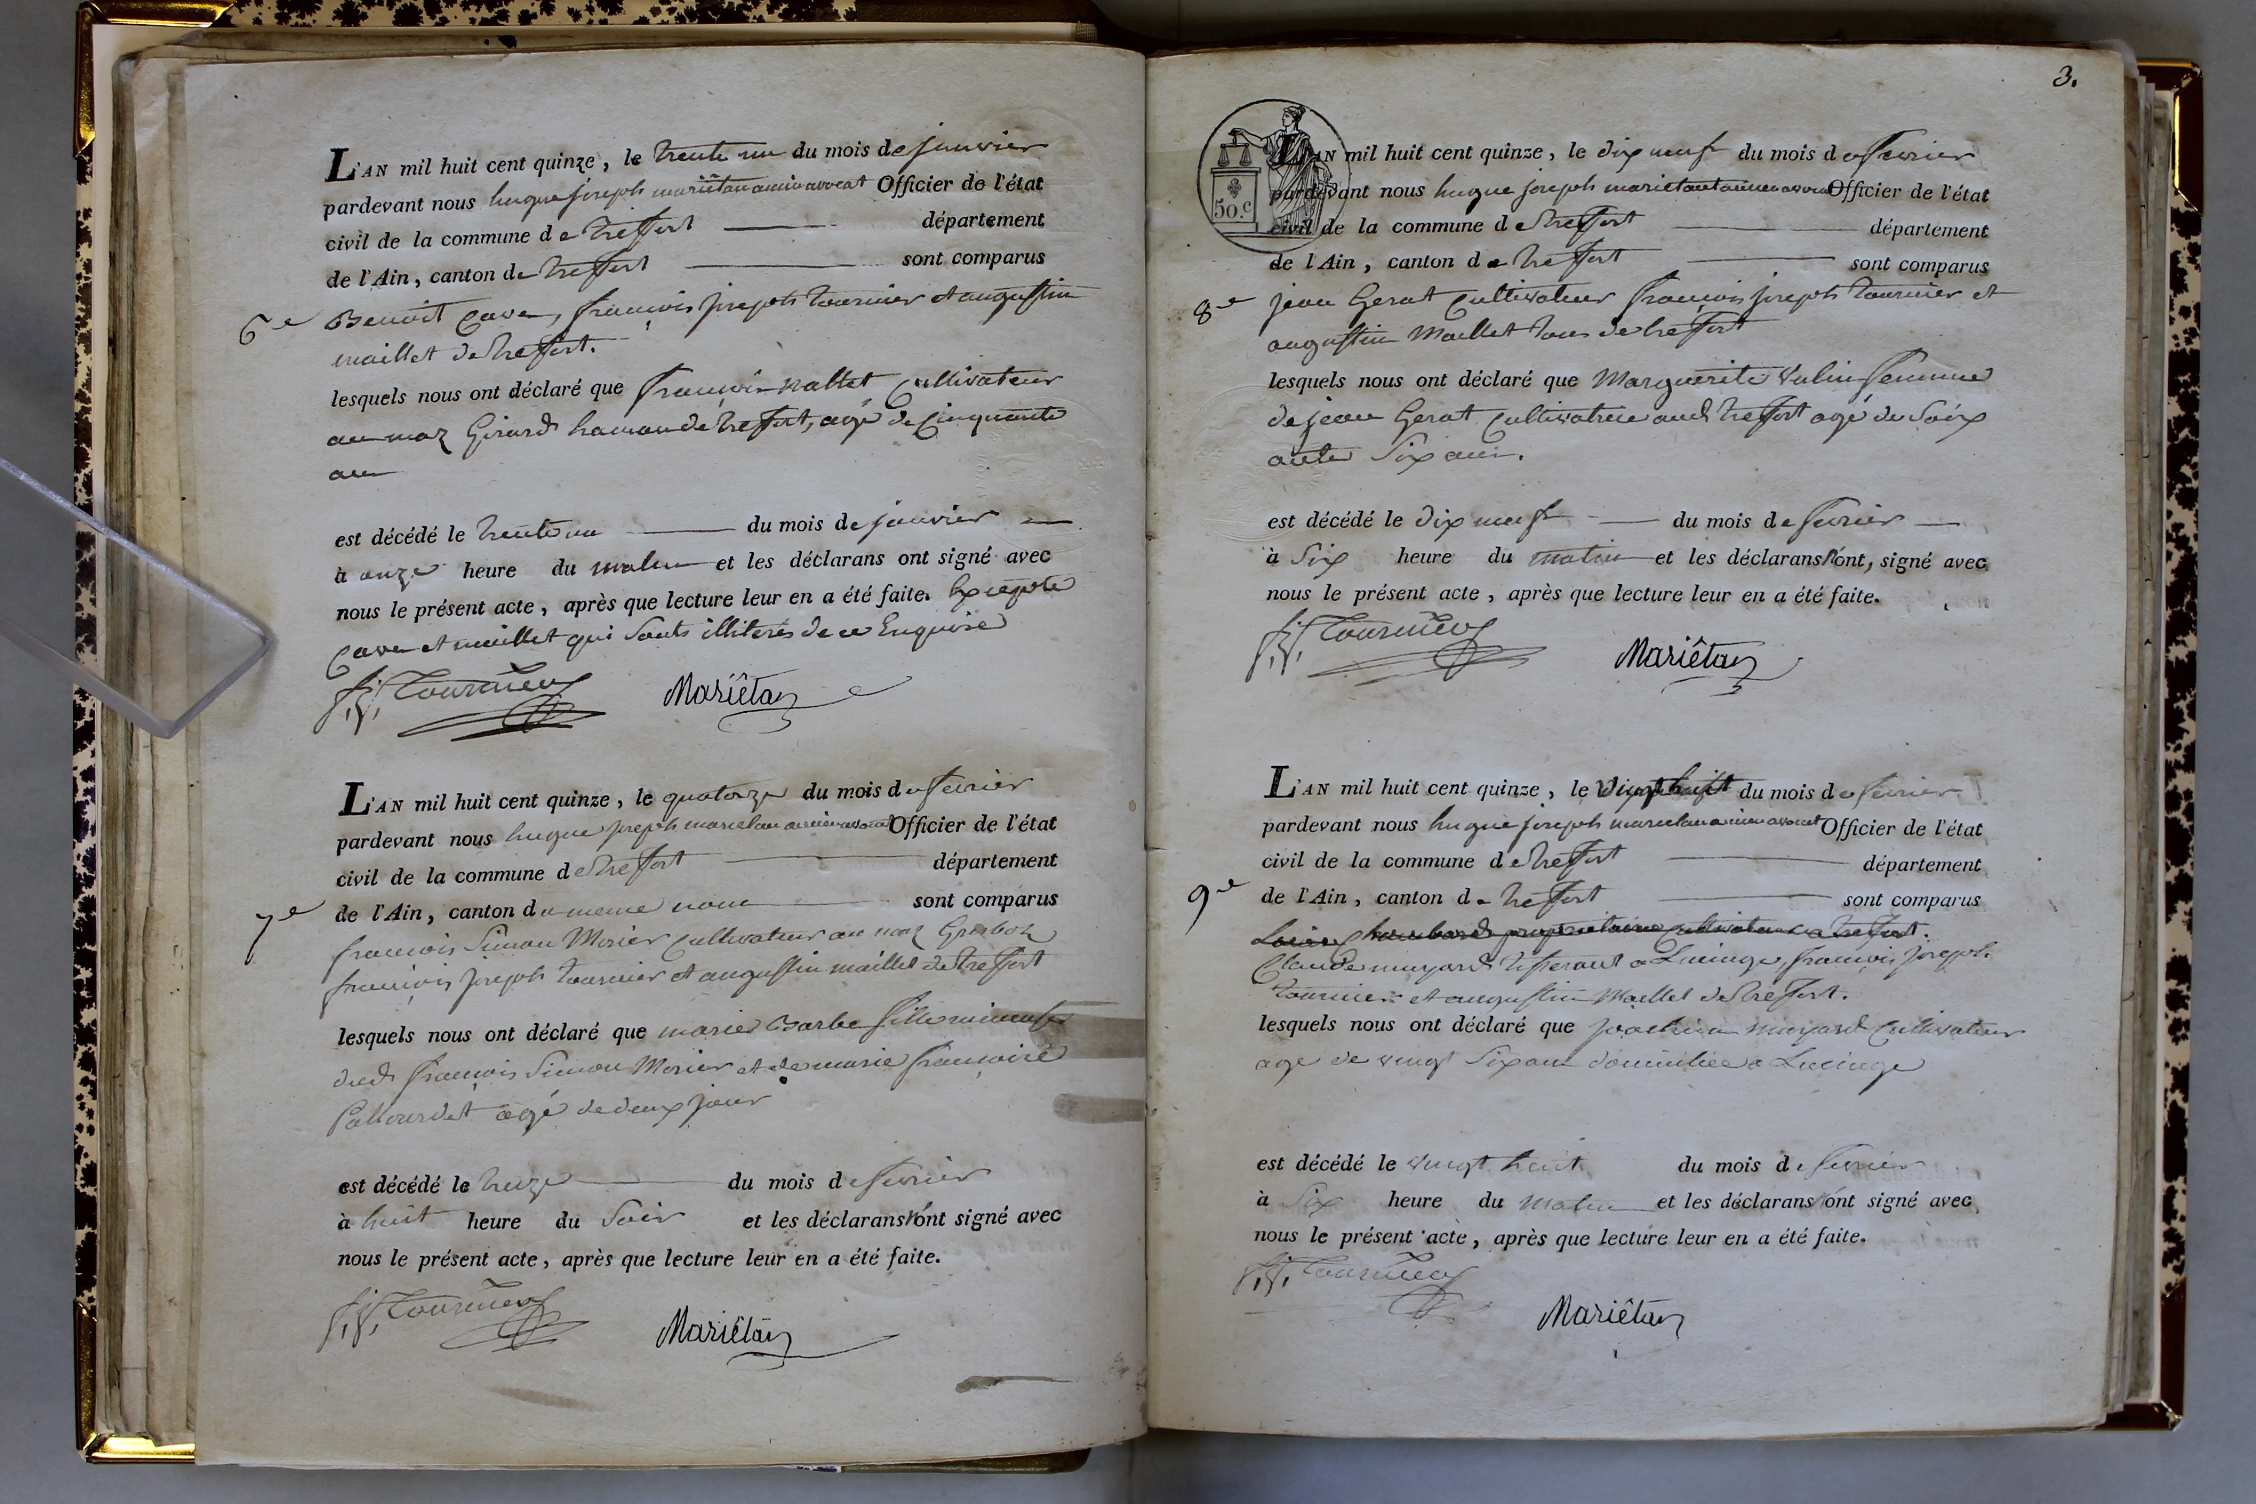 L'AN mil huit cent quinze, le trente un du mois de janvier
pardevant nous hugue joseph mariêtan ancien avocat Officier de l'état
civil de la commune de treffort département
de l'Ain, canton de treffort sont comparus
6e Benoit Cavee, françois joseph tournier et augustin
maillet de treffort.
lesquels nous ont déclaré que françois Nallet Cultivateur
au maz Girard hamau de treffort, agé de Cinquante
an
est décédé le trente un du mois de janvier
à onze heure du matin et les déclarans ont signé avec
nous le présent acte, après que lecture leur en a été faite. Excepté
et maillet qui sont illiterés de ce Enquise
f. j. Tournier Mariêtan
L'AN mil huit cent quinze, le quatorze du mois de fevrier
pardevant nous hugue joseph marietan ancien avocat Officier de l'état
civil de la commune de treffort département
de l'Ain, canton du meme nom sont comparus
7e françois Simon Morier Cultivateur au maz
françois joseph tournier et augustin maillet de treffort
lesquels nous ont déclaré que marie Barbe fille mineure
dud françois Simon Morier et de marie françoise
agé de deux jour
est décédé le treize du mois de fevrier
à huit heure du Soir et les déclarans n'ont signé avec
nous le présent acte, après que lecture leur en a été faite.
f. j. Tournier Mariêtan
3.
50.c
L'AN mil huit cent quinze, le dix neuf du mois de fevrier
pardevant nous hugue joseph marietan ancien avocat Officier de l'état
civil de la commune de treffort département
de l'Ain, canton de treffort sont comparus
8e jean Gerat Cultivateur françois joseph tournier et
augustin Maillet tous de treffort
lesquels nous ont déclaré que Marguerite Vulin femme
de jean Gerat Cultivatrice aud treffort agé de Soix
ante Six ans.
est décédé le dix neuf du mois de fevrier
à Six heure du matin et les déclarans n'ont, signé avec
nous le présent acte, après que lecture leur en a été faite.
f. j. Tournier Mariêtan
L'AN mil huit cent quinze, le vingt huit du mois de fevrier
pardevant nous hugue joseph marietan ancien avocat Officier de l'état
civil de la commune de treffort département
9e de l'Ain, canton de treffort sont comparus
Chambard propriétaire Cultivateur a treffort.
Claude muyard tisserand a Lucinge, françois joseph
tournier et augustin Maillet de treffort.
lesquels nous ont déclaré que joachim muyard Cultivateur
age de vingt Six ans domiciliée a Lucinge
est décédé le vingt huit du mois de fevrier
à Six heure du matin et les déclarans n'ont signé avec
nous le présent acte, après que lecture leur en a été faite.
f. j. Tournier Mariêtan